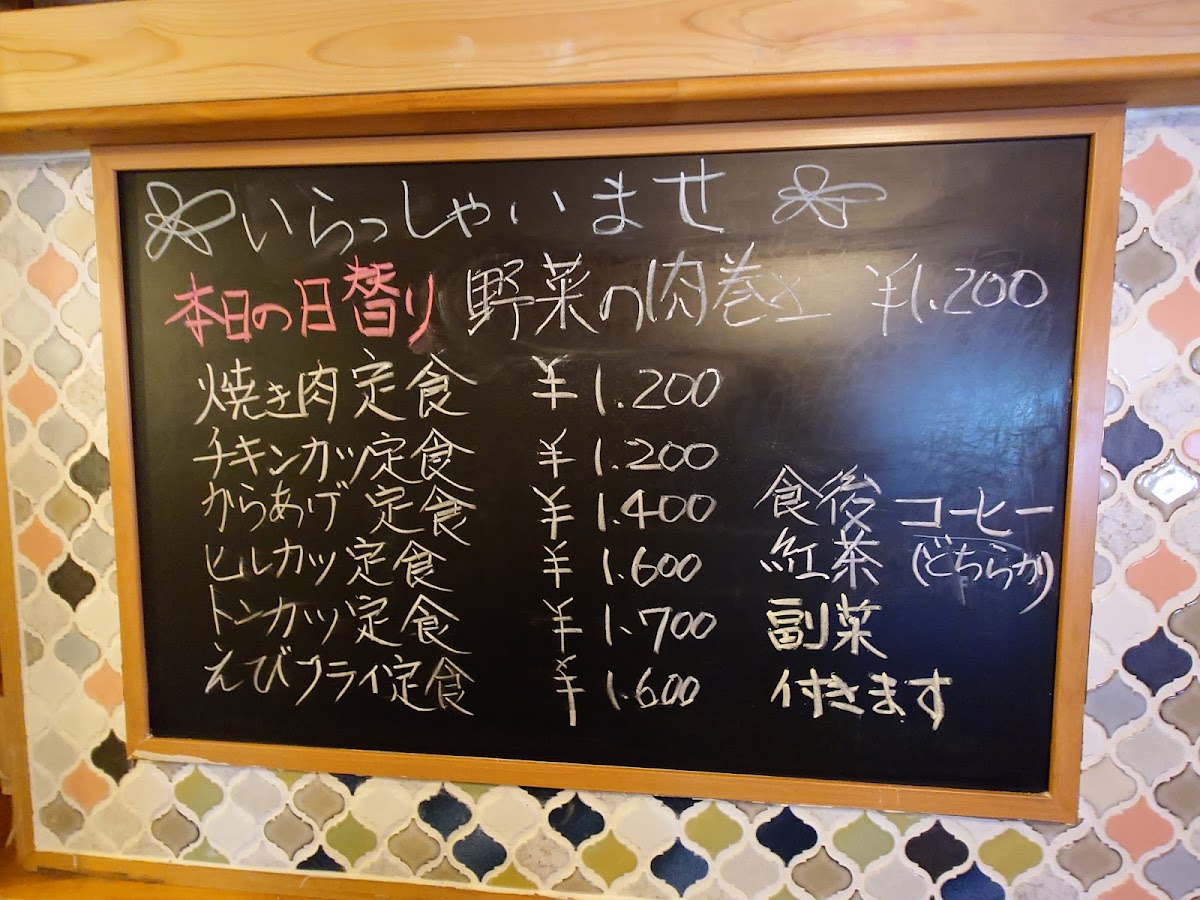 いらっしゃいませ
本日の日替り 野菜の肉巻き ¥1.200
焼き肉定食 ¥1.200
チキンカツ定食 ¥1.200
からあげ定食 ¥1.400
ヒルカツ定食 ¥1.600
トンカツ定食 ¥1.700
えびフライ定食 ¥1.600
食後 コーヒー
紅茶 (どちらか)
副菜
付きます